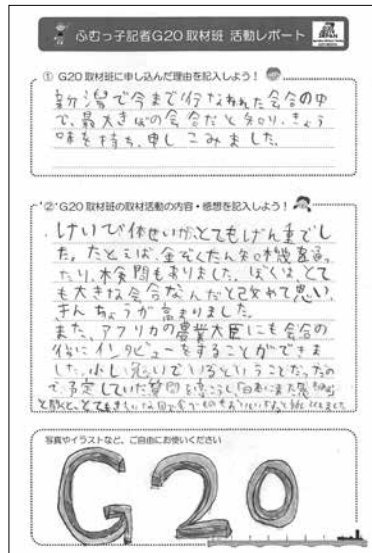 ふむっ子記者G20取材班 活動レポート
① G20取材班に申し込んだ理由を記入しよう！
新潟で今まで行なわれた会合の中
で、最大きぼの会合だと知り、きょう
味を持ち、申しこみました。
②G20取材班の取材活動の内容・感想を記入しよう！
けいび体せいが、とてもげん重でし
た。たとえば、金ぞくたん知機を通っ
たり、検問もありました。ぼくは、とて
も大きな会合なんだと改めて思い、
きんちょうが高まりました。
また、アフリカの農業大臣にも会合の
後にインタビューをすることができま
した。少し急いでいるということだったの
で、予定していた質問を
と
写真やイラストなど、ご自由にお使いください
G20